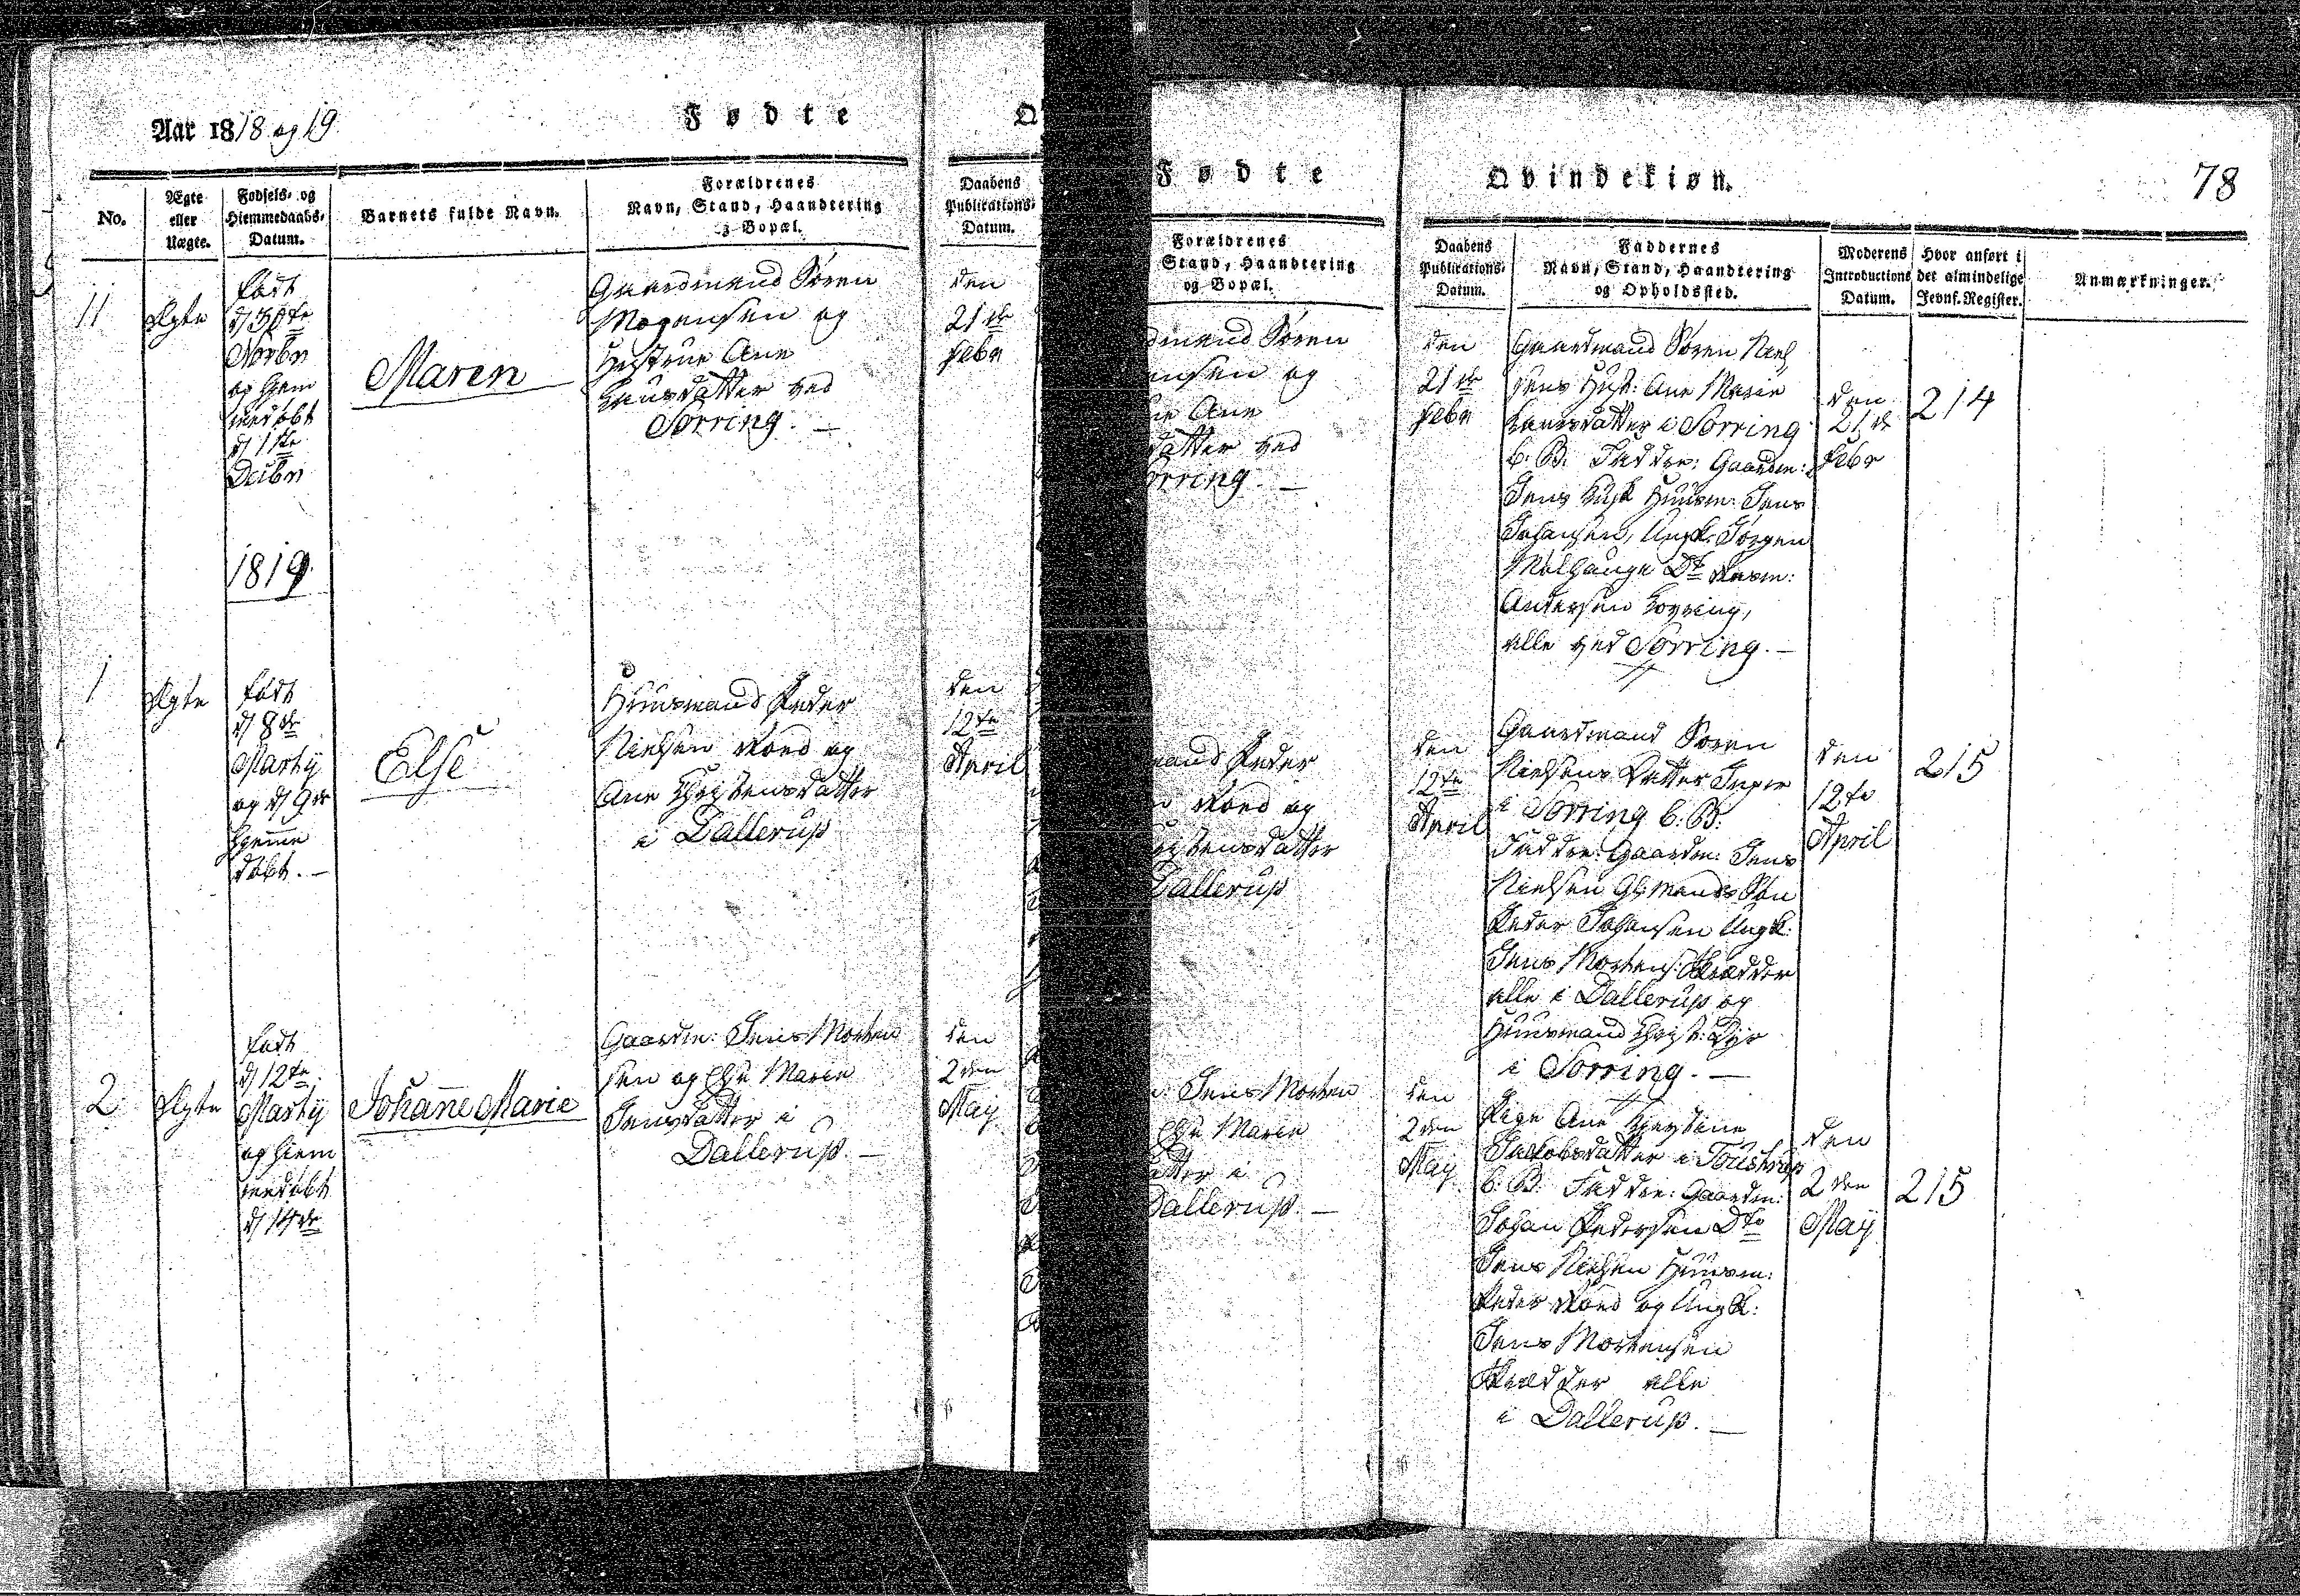 Aar 1818 og 19.
Fødte
No.
Ægte
eller
Uægte.
Fødsels- og
Hiemmedaabs-
Datum.
Barnets fulde Navn.
Forældrenes
Navn, Stand, Haandtering
og Bopæl.
Daabens
Publications-
Datum.
11
Ægte
født
d 30te
Novbr
og hjem
medøbt
d 1ste
Decbr
Maren
Gaardmand Søren
Mogensen og
Hustrue Ane
Laursdatter ved
Sorring. —
den
21de
Febr
1819.
1
Ægte
født
d 8de
Martij
og d 9de
hjemme
døbt. —
Else
Huusmand Peder
Nielsen Roed og
Ane Christensdatter
i Dallerup
den
12te
April
2
Ægte
født
d 12te
Martij
og hiem
medøbt
d 14de
Johañe Marie
Gaardm: Jens Morten
sen og Else Marie
Jensdatter i
Dallerup. —
den
2den
Maij
Fødte
Qvindekiøn.
78
Forældrenes
Stand, Haandtering
og Bopæl.
Daabens
Publications-
Datum.
Faddernes
Navn, Stand, Haandtering
og Opholdssted.
Moderens
Introductions
Datum.
Hvor anført i
det almindelige
Jevnf. Register.
Anmærkninger.
dmand Søren
ensen og
ue Ane
datter ved
orring. —
den
21de
Febr
Gaardmand Søren Niel
sens Hust: Ane Marie
Laursdatter i Sorring
b: B: Faddere: Gaardm:
Jens Huusm: Jens
Johansen, Ungk: Jørgen
Mølhauge Dt Rasm:
Andersen
alle ved Sorring. —
den
21de
Febr
214
mand Peder
n Roed og
ristensdatter
Dallerup
den
12te
April
Gaardmand Søren
Nielsens Datter Inger
i Sorring b: B:
Faddre: Gaardm: Jens
Nielsen Gmands Søn
Peder Johansen Ungk:
Jens Mortens: Skrædder
alle i Dallerup og
Huusmand Christ: Dyr
i Sorring. —
den
12te
April
215
: Jens Morten
Else Marie
atter i
Dallerup. —
den
2den
Maij
Pige Ane Kirstine
Jacobsdatter i Toustrup
b: B: Faddre: Gaardm:
Johan Pedersen Dto
Jens Nielsen Huusm:
Peder Roed og Ungk:
Jens Mortensen
Skrædder alle
i Dallerup. —
den
2den
Maij
215